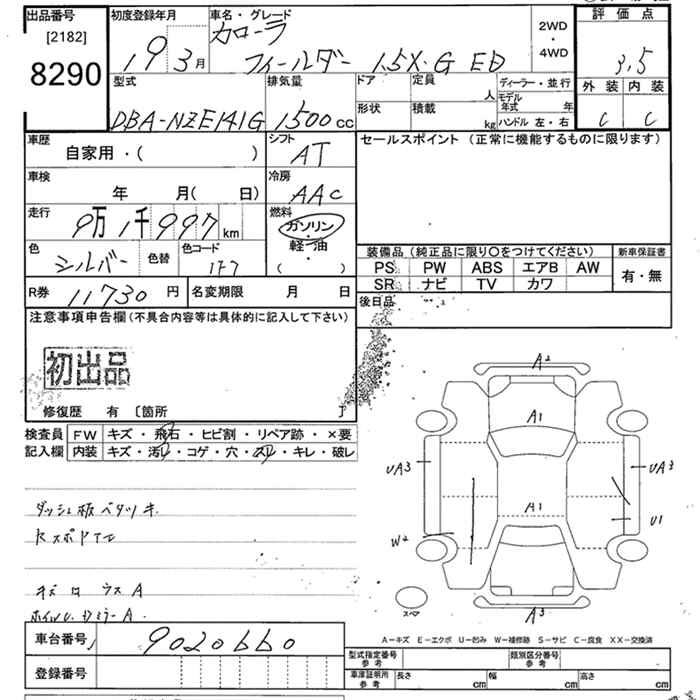 出品番号
[2182]
8290
初度登録年月
19 3月
車名・グレード
カローラ
フィールダー 1.5X・G ED
2WD
・
4WD
評価点
3.5
外装 内装
C C
型式
DBA-NZE141G
排気量
1500cc
ドア
定員
人
形状
積載
kg
ディーラー・並行
モデル年式 年
ハンドル 左・右
車歴
自家用・( )
シフト
AT
セールスポイント (正常に機能するものに限ります)
車検
年 月( 日)
冷房
AAC
走行
9万1千997km
燃料
ガソリン
軽・油
( )
色
シルバー
色替
色コード
1F7
装備品(純正品に限り〇をつけてください)
新車保証書
PS PW ABS エアB AW
SR ナビ TV カワ
有・無
R券 11730円
名変期限 月 日
後日品
注意事項申告欄(不具合内容等は具体的に記入して下さい)
初出品
修復歴 有 〔箇所 〕
検査員記入欄
FW キズ・飛石・ヒビ割・リペア跡・×要
内装 キズ・汚レ・コゲ・穴・スレ・キレ・破レ
ダッシュ板ベタツキ
A2
A1
UA3
UA3
A1
U1
W2
A3
スペア
A-キズ E-エクボ U-凹み W-補修跡 S-サビ C-腐食 XX-交換済
車台番号
9020660
登録番号
型式指定番号 参考
類別区分番号 参考
車庫証明所 参考
長さ cm
幅 cm
高さ cm